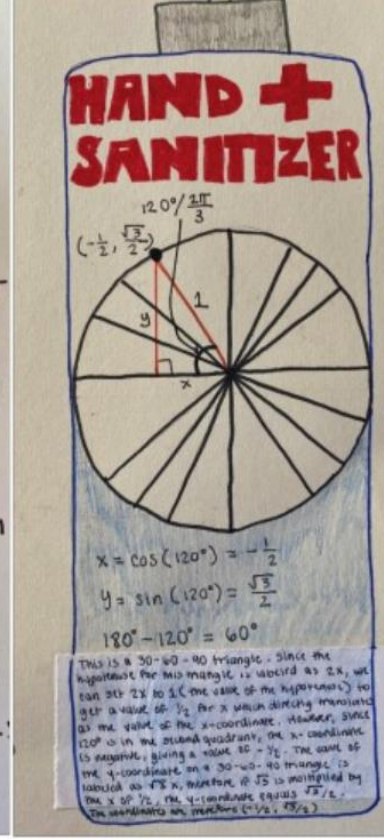 HAND +
SANITIZER
120°/ 2π/3
(-1/2, √3/2)
1
y
x
x = cos(120°) = -1/2
y = sin(120°) = √3/2
180° - 120° = 60°
This is a 30-60-90 triangle. Since the
hypotenuse for this triangle is labeled as 2x, we
can set 2x to 1 (the value of the hypotenuse) to
get a value of 1/2 for x which directly translates
as the value of the x-coordinate. However, since
120° is in the second quadrant, the x-coordinate
is negative, giving a value of -1/2. The value of
the y-coordinate on a 30-60-90 triangle is
labeled as √3 x, therefore if √3 is multiplied by
the x of 1/2, the y-coordinate equals √3/2.
The coordinates are therefore (-1/2, √3/2)